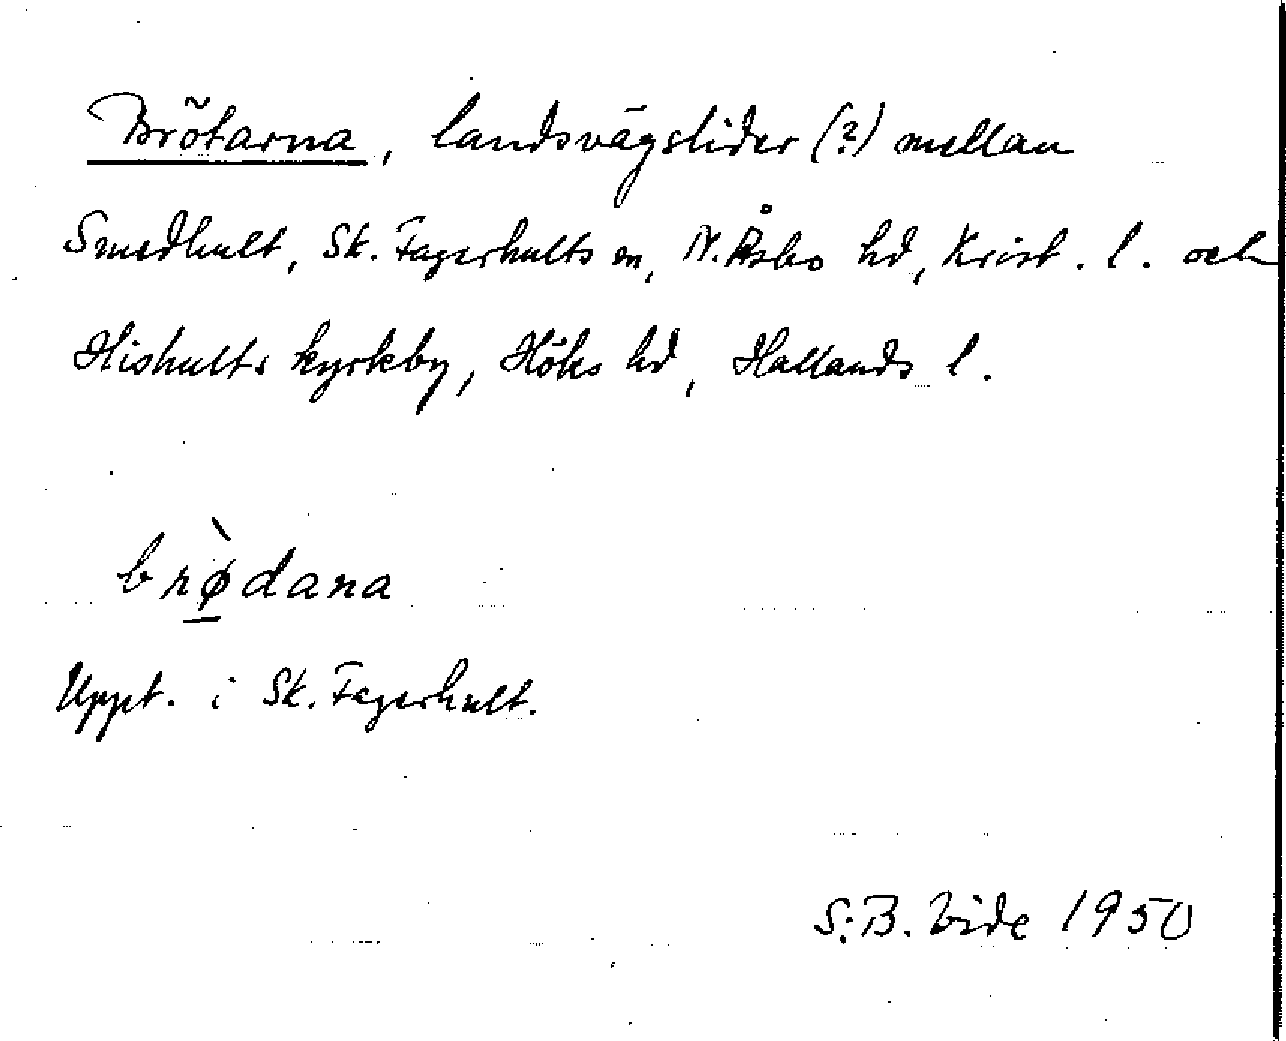 Brötarna, landsvägslider (?) mellan
Smedhult, Sk. Fagerhults sn, N. Åsbo hd, Krist. l. och
Hishults kyrkby, Höks hd, Hallands l.
brø̀dana
Uppt. i Sk. Fagerhult.
S:B. Vide 1950